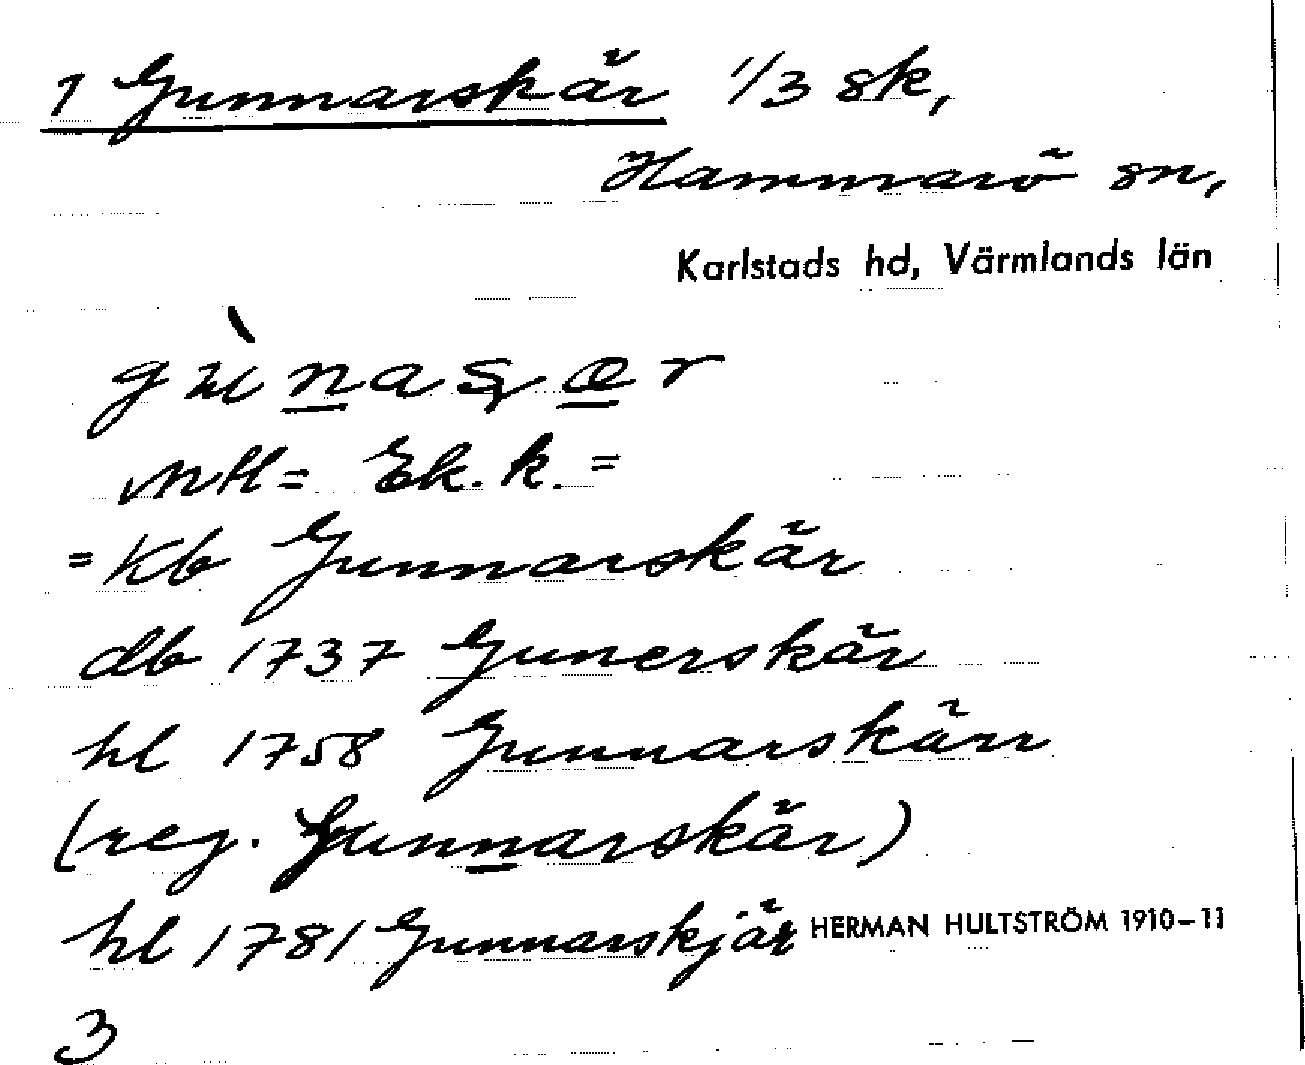 1 Gunnarskär 1/3 sk,
Hammarö sn,
Karlstads hd, Värmlands län
= Ek. k. =
= Kb Gunnarskär
db 1737 Gunerskär
hl 1758 Gunnarskärr
(reg. Gunnarskär)
hl 1781 Gunnarskjär HERMAN HULTSTRÖM 1910-11
3